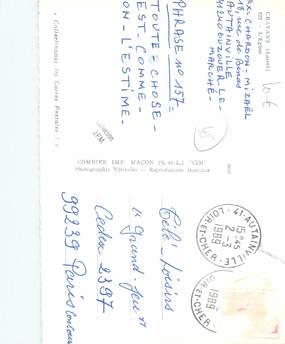 CHAVANT (Loiret)
127 - L'Eglise
EX: CHARDON-MIZAËL
18, rue de
AUTAINVILLE
41240 OUZOUER-LE-
MARCHÉ-
PHRASE no 157-
TOUTE-CHOSE-
EST-COMME-
ON-L'ESTIME-
« Collectionnez les Cartes Postales ! »
COMBIER IMP. MACON (S.-et-L.) "CIM"
Photographie Véritable - Reproduction Interdite
41-AUTAINVILLE
LOIR-ET-CHER
15H45
2-3
1989
Télé-Loisirs
"Grand-Jeu"
Cedex 2397
99239 Paris concours